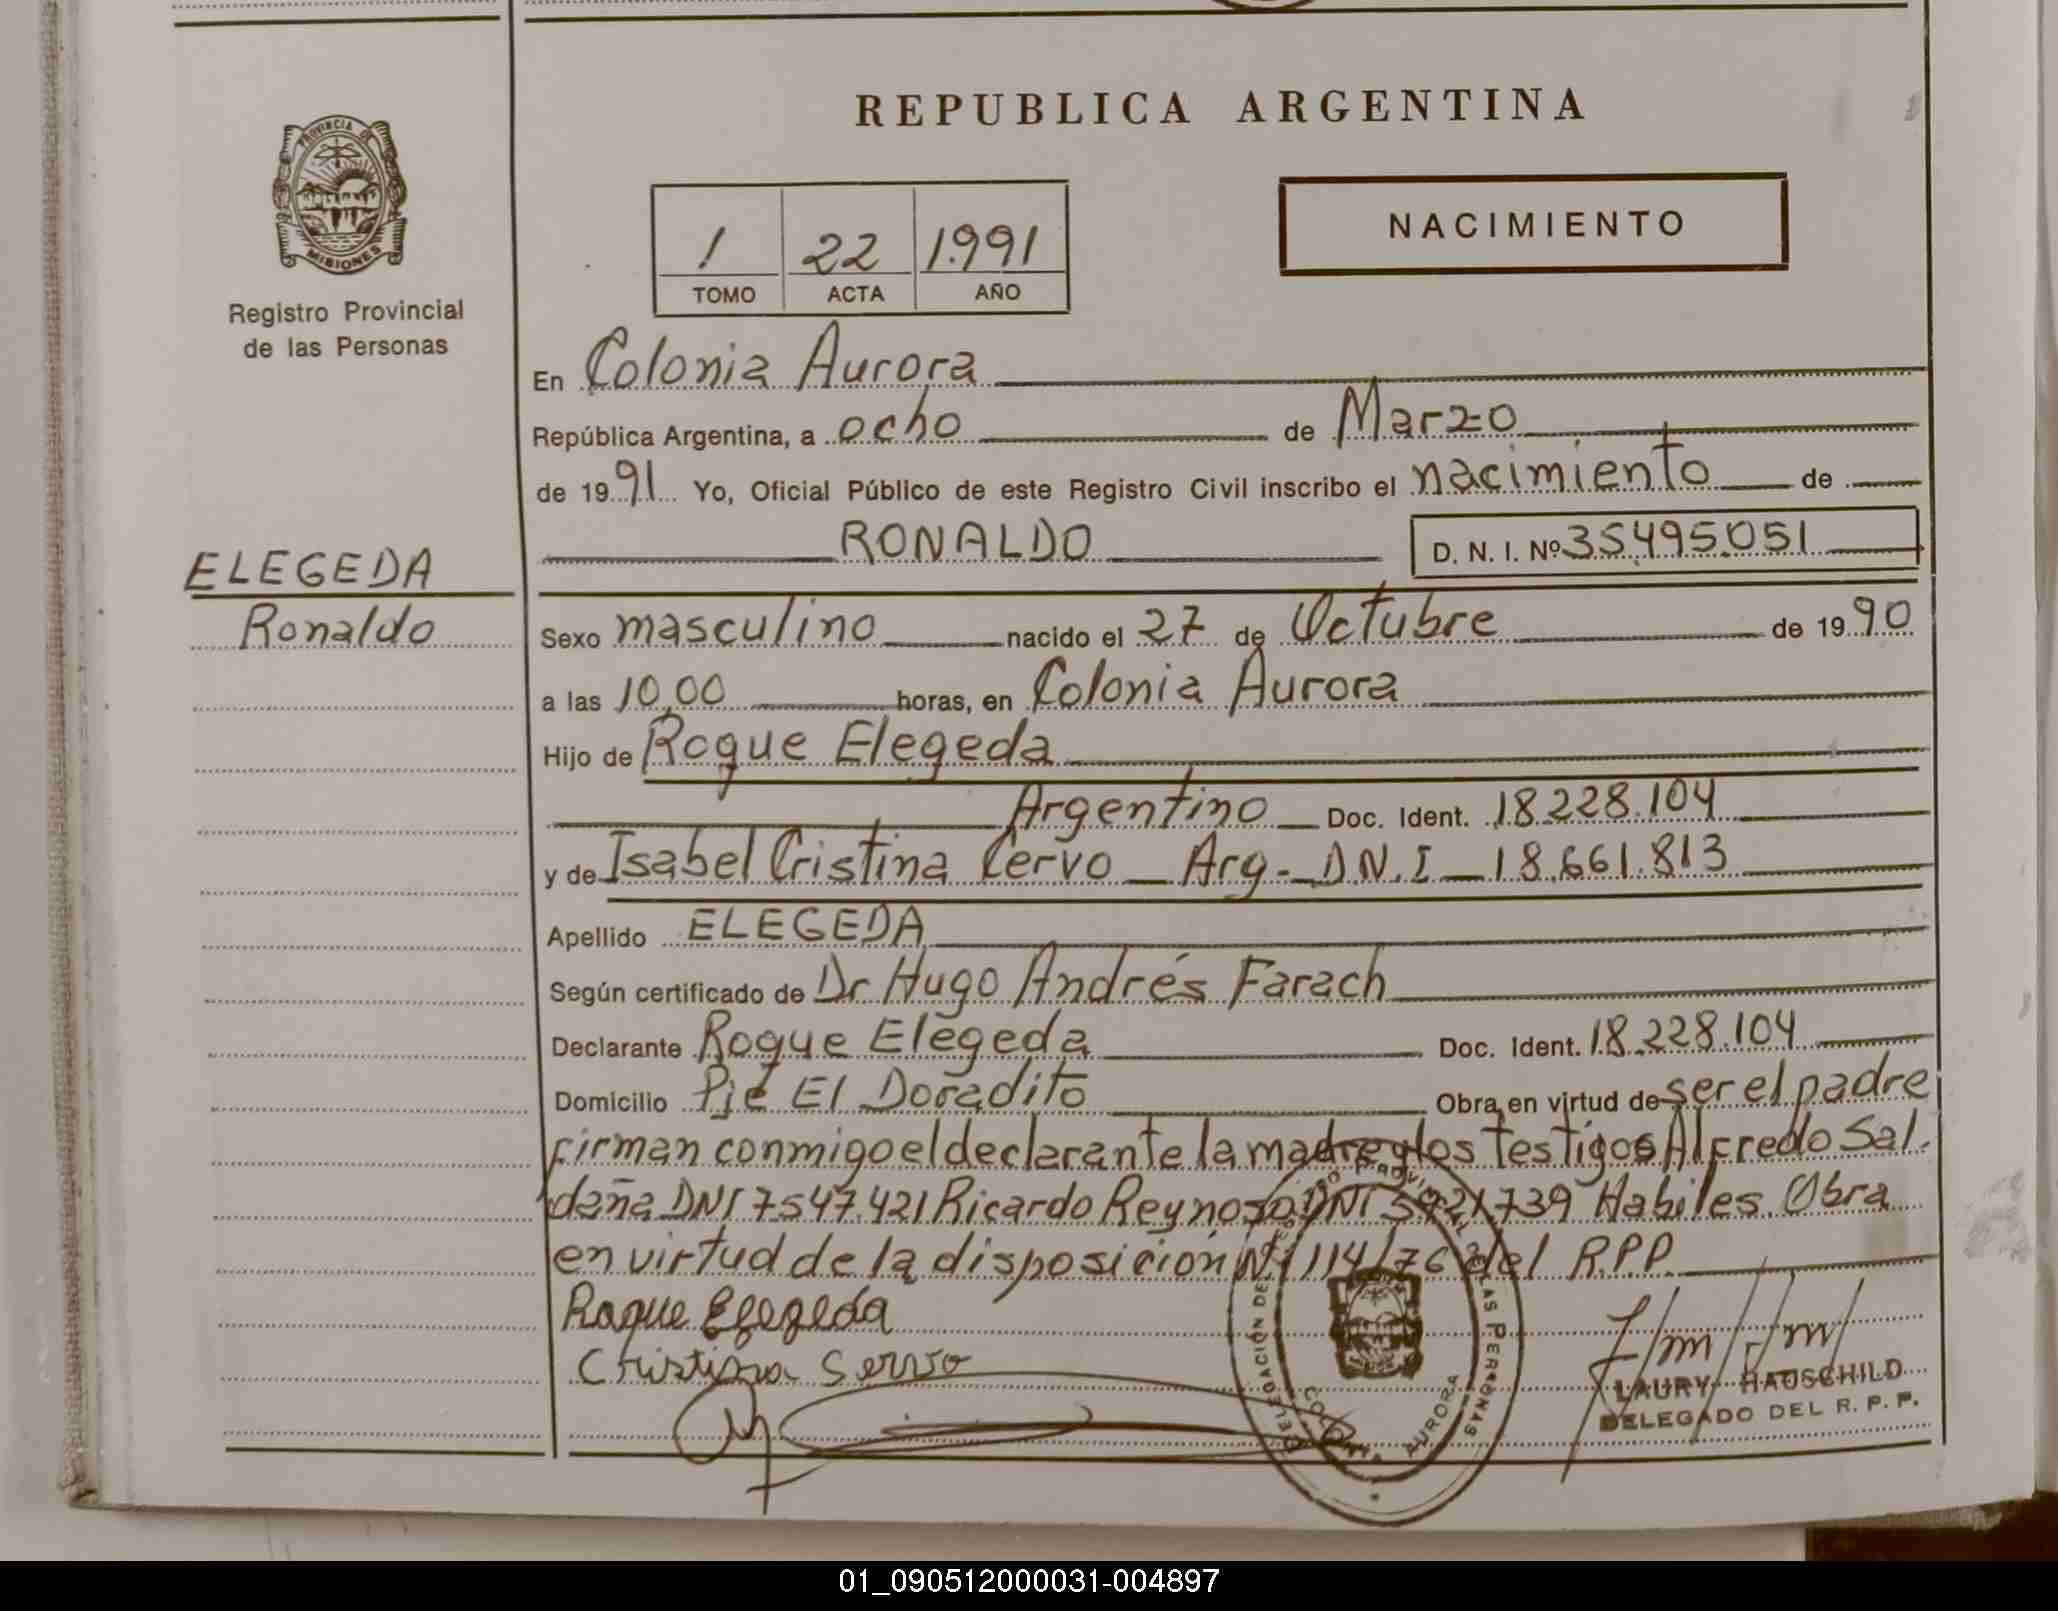 REPUBLICA ARGENTINA
PROVINCIA DE
MISIONES
Registro Provincial
de las Personas
1 22 1.991
TOMO ACTA AÑO
NACIMIENTO
En Colonia Aurora
República Argentina, a ocho de Marzo
de 1991 Yo, Oficial Público de este Registro Civil inscribo el nacimiento de
RONALDO D. N. I. Nº 35495.051
ELEGEDA
Ronaldo
Sexo masculino nacido el 27 de Octubre de 1990
a las 10,00 horas, en Colonia Aurora
Hijo de Roque Elegeda
Argentino Doc. Ident. 18.228.104
y de Isabel Cristina Cervo Arg- D.N.I 18.661.813
Apellido ELEGEDA
Según certificado de Dr Hugo Andrés Farach
Declarante Roque Elegeda Doc. Ident. 18.228.104
Domicilio Pje El Doradito Obra en virtud de ser el padre
firman conmigo el declarante la madre y los testigos Alfredo Sal.
daña DNI 7547.421 Ricardo Reynoso DNI Habiles. Obra
en virtud de la disposición Nº 114/76 del R.P.P.
Roque Elegeda
Cristina Servo
DELEGACIÓN DEL REGISTRO PROVINCIAL DE LAS PERSONAS
COLONIA AURORA
LAURY HAUSCHILD
DELEGADO DEL R. P. P.
01_090512000031-004897